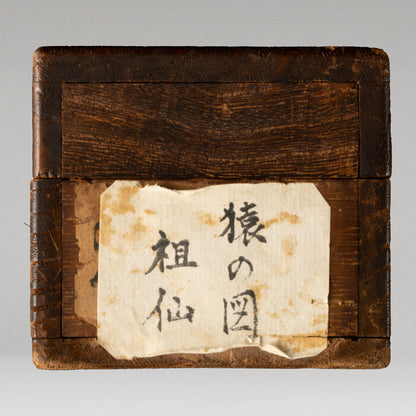 猿の図
祖仙